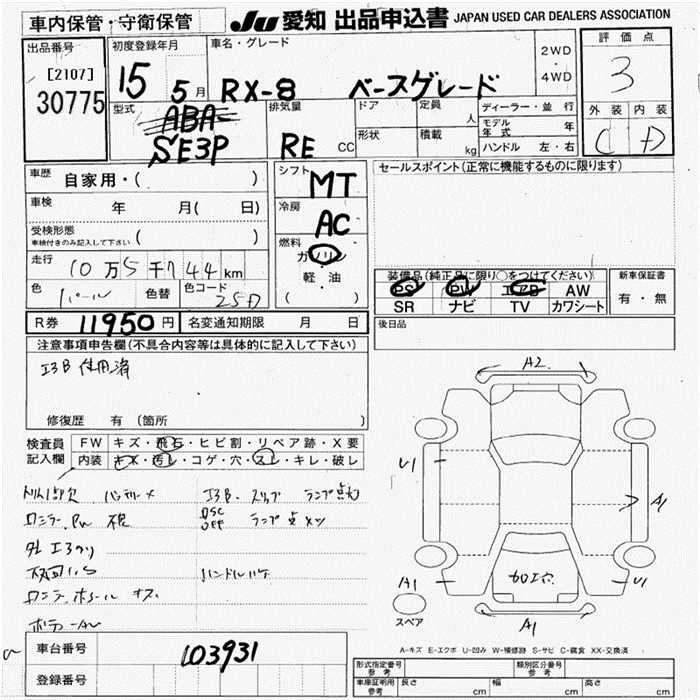 車内保管・守衛保管
JU 愛知 出品申込書 JAPAN USED CAR DEALERS ASSOCIATION
出品番号
[2107]
30775
初度登録年月
15 5 月
車名・グレード
RX-8 ベースグレード
2WD
・
4WD
評価点
3
外装 内装
C D
型式
ABA-
SE3P
排気量
RE CC
ドア
形状
定員 人
積載 kg
ディーラー・並 行
モデル年式 年
ハンドル 左・右
車歴 自家用・( )
車検 年 月( 日)
受検形態
車検付きのみ記入して下さい ( )
走行 10 万 5 千 44 km
色 パール 色替 色コード 25D
シフト MT
冷房 AC
燃料
ガソリン
・
軽・油
( )
セールスポイント(正常に機能するものに限ります)
装備品(純正品に限り○をつけてください)
PS PW エアB AW
SR ナビ TV カワシート
新車保証書
有・無
後日品
R券 11950 円 名変通知期限 月 日
注意事項申告欄(不具合内容等は具体的に記入して下さい)
エアB 使用済
修復歴 有 (箇所 )
検査員
記入欄
FW キズ・飛石・ヒビ割・リペア跡・X要
内装 キズ・汚レ・コゲ・穴・スレ・キレ・破レ
エアB.
DSC
OFF
ランプ点
ハンドル
A2
U1
A1
A1
U1
A1
スペア
A-キズ E-エクボ U-凹み W-補修跡 S-サビ C-腐食 XX-交換済
車台番号 103931
登録番号
型式指定番号
参考
類別区分番号
参考
車庫証明用
参考
長さ cm 幅 cm 高さ cm